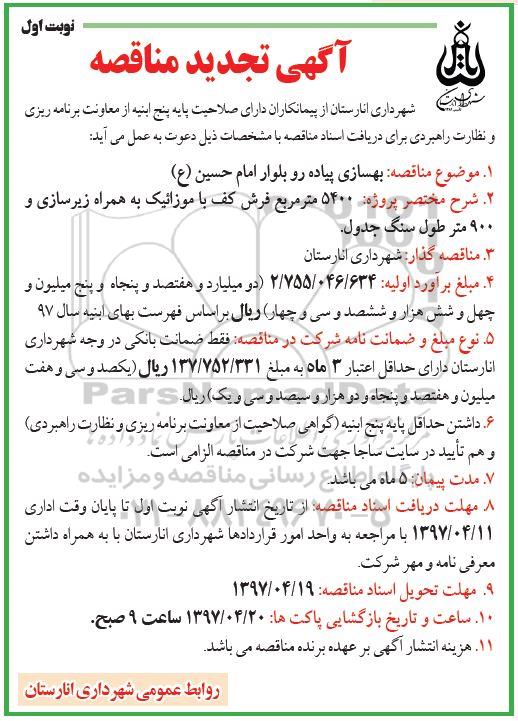 نوبت اول
آگهی تجدید مناقصه
شهرداری انارستان از پیمانکاران دارای صلاحیت پایه پنج ابنیه از معاونت برنامه ریزی
و نظارت راهبردی برای دریافت اسناد مناقصه با مشخصات ذیل دعوت به عمل می آید:
۱. موضوع مناقصه: بهسازی پیاده رو بلوار امام حسین (ع)
۲. شرح مختصر پروژه: ۵۴۰۰ مترمربع فرش کف با موزائیک به همراه زیرسازی و
۹۰۰ متر طول سنگ جدول.
۳. مناقصه گذار: شهرداری انارستان
۴. مبلغ برآورد اولیه: ۲/۷۵۵/۰۴۶/۶۳۴ (دو میلیارد و هفتصد و پنجاه و پنج میلیون و
چهل و شش هزار و ششصد و سی و چهار) ریال براساس فهرست بهای ابنیه سال ۹۷
۵. نوع مبلغ و ضمانت نامه شرکت در مناقصه: فقط ضمانت بانکی در وجه شهرداری
انارستان دارای حداقل اعتبار ۳ ماه به مبلغ ۱۳۷/۷۵۲/۳۳۱ ریال (یکصد و سی و هفت
میلیون و هفتصد و پنجاه و دو هزار و سیصد و سی و یک) ریال.
۶. داشتن حداقل پایه پنج ابنیه (گواهی صلاحیت از معاونت برنامه ریزی و نظارت راهبردی)
و هم تأیید در سایت ساجا جهت شرکت در مناقصه الزامی است.
۷. مدت پیمان: ۵ ماه می باشد.
۸. مهلت دریافت اسناد مناقصه: از تاریخ انتشار آگهی نوبت اول تا پایان وقت اداری
۱۳۹۷/۰۴/۱۱ با مراجعه به واحد امور قراردادها شهرداری انارستان با به همراه داشتن
معرفی نامه و مهر شرکت.
۹. مهلت تحویل اسناد مناقصه: ۱۳۹۷/۰۴/۱۹
۱۰. ساعت و تاریخ بازگشایی پاکت ها: ۱۳۹۷/۰۴/۲۰ ساعت ۹ صبح.
۱۱. هزینه انتشار آگهی بر عهده برنده مناقصه می باشد.
روابط عمومی شهرداری انارستان
ParsNamadData
پایگاه اطلاع رسانی مناقصه و مزایده
۰۲۱-۸۸۳۴۹۶۷۰-۵